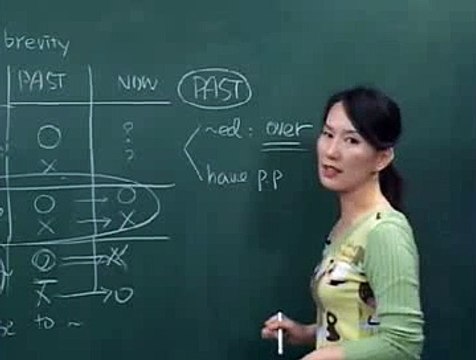 brevity
PAST NOW PAST
O ?
X ?
~ed : over
have p.p
O → O
X → X
O → X
X → O
to ~